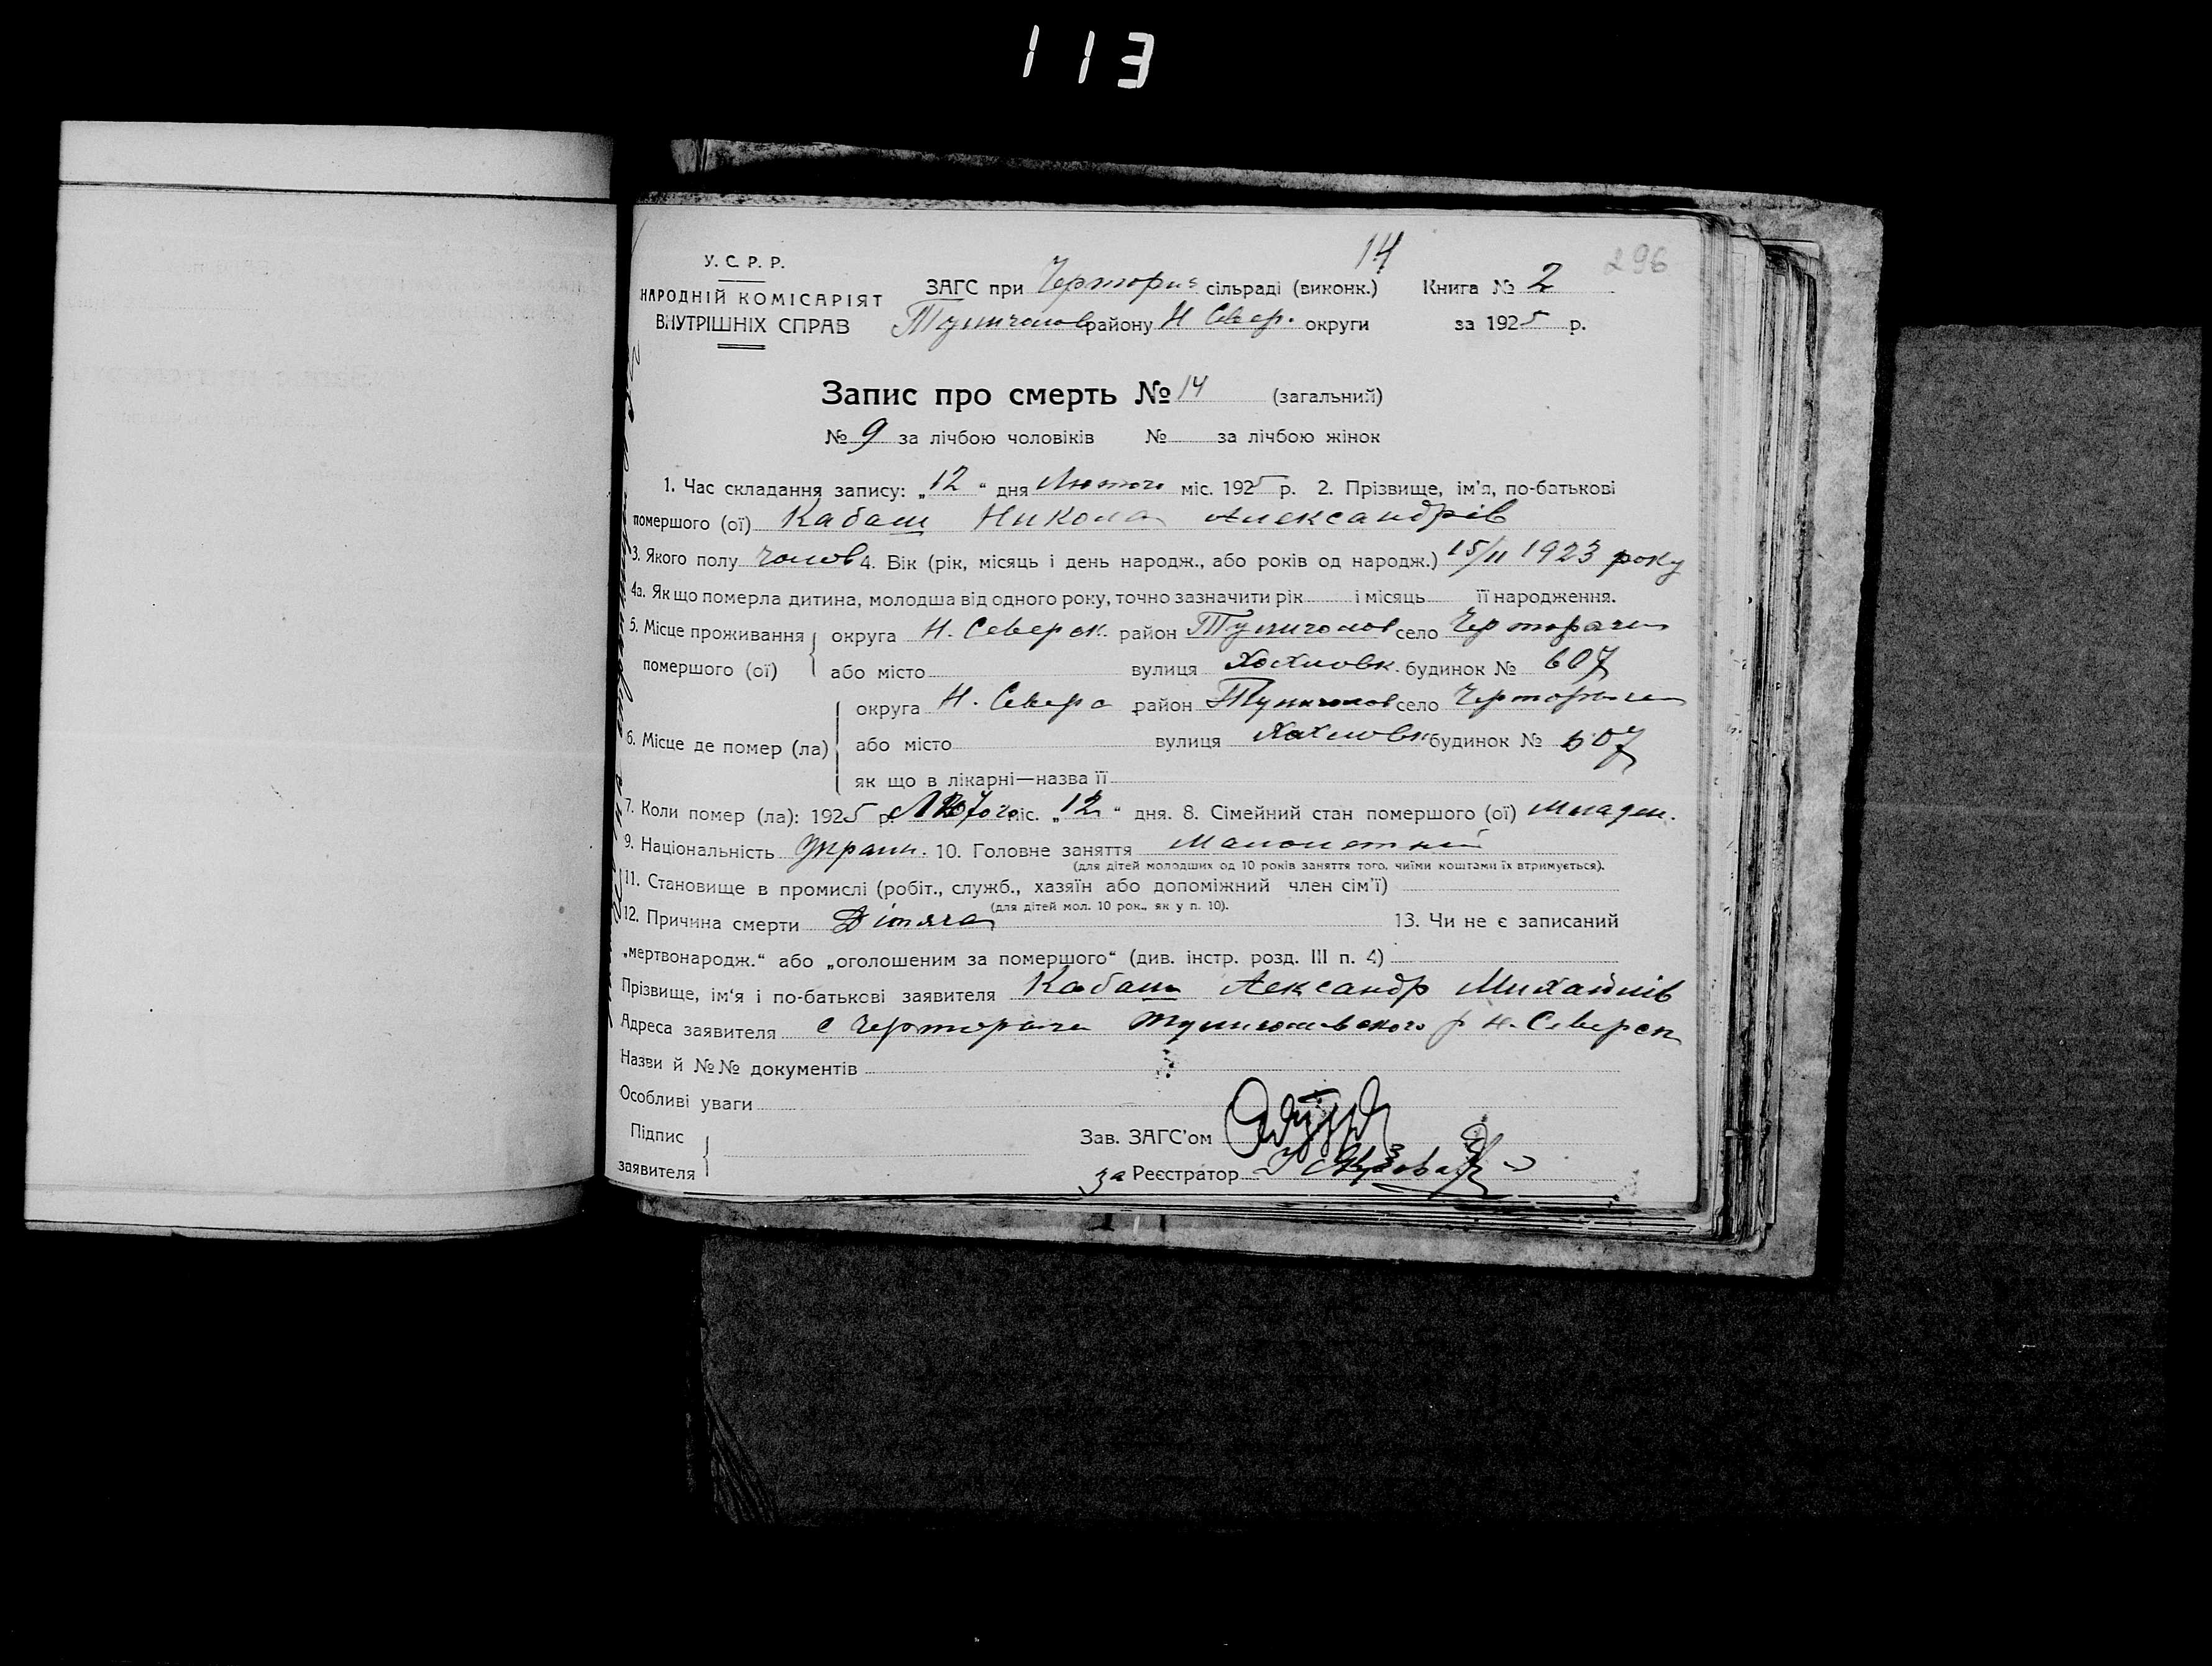 113
14
296
У. С. Р. Р.
НАРОДНІЙ КОМІСАРІЯТ
ВНУТРІШНІХ СПРАВ
ЗАГС при сільраді (виконк.) Книга № 2
району Н Север. округи за 1925 р.
Запис про смерть № 14 (загальний)
№ 9 за лічбою чоловіків № за лічбою жінок
1. Час складання запису: „12“ дня Лютого міс. 1925 р. 2. Прізвище, ім'я, по-батькові
помершого (ої) Кабаш Никола Александрів
3. Якого полу чолов 4. Вік (рік, місяць і день народж., або років од народж.) 15/II 1923 року
4а. Як що померла дитина, молодша від одного року, точно зазначити рік і місяць її народження.
5. Місце проживання округа Н. Северск. район село
помершого (ої) або місто вулиця будинок № 607
округа Н. Север район село
6. Місце де помер (ла) або місто вулиця будинок № 607
як що в лікарні—назва її
7. Коли помер (ла): 1925 р. міс. „12“ дня. 8. Сімейний стан помершого (ої) младен.
9. Національність Украин. 10. Головне заняття Малолетний
(для дітей молодших од 10 років заняття того, чиїми коштами їх втримується).
11. Становище в промислі (робіт., служб., хазяїн або допоміжний член сім'ї)
(для дітей мол. 10 рок., як у п. 10).
12. Причина смерти Дітяча 13. Чи не є записаний
„мертвонародж.“ або „оголошеним за помершого“ (див. інстр. розд. III п. 4)
Прізвище, ім'я і по-батькові заявителя Кабаш Александр Михайлів
Адреса заявителя с р Н. Северск
Назви й №№ документів
Особливі уваги
Підпис
заявителя
Зав. ЗАГС'ом
за Реєстратор